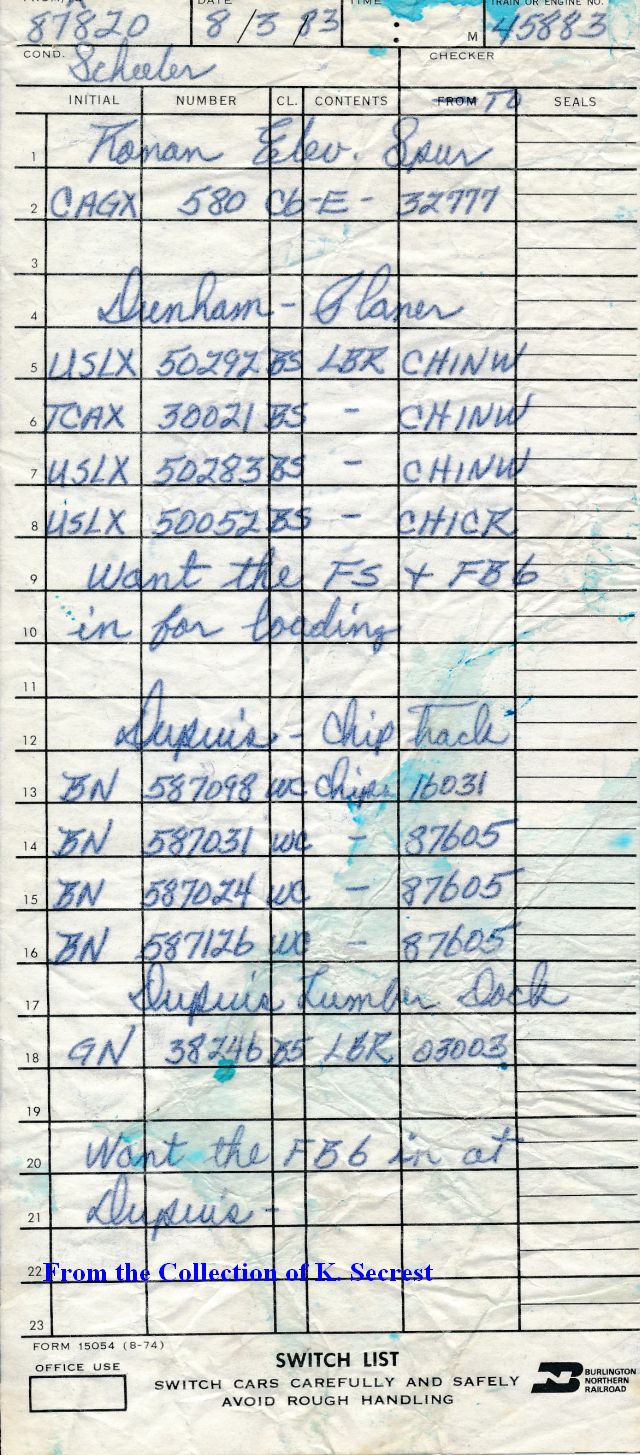 DATE TIME TRAIN OR ENGINE NO.
87820 8/3/83 : M 45883
COND. Scheeler CHECKER
INITIAL NUMBER CL. CONTENTS FROM TO SEALS
1 Ronan Elev. Spur
2 CAGX 580 C6 -E- 32777
3
4 Dunham - Planer
5 USLX 50292 BS LBR CHINW
6 TCAX 30021 BS - CHINW
7 USLX 50283 BS - CHINW
8 USLX 50052 BS - CHICR
9 Want the FS + FB6
10 in for loading
11
12 Dupuis - Chip Track
13 BN 587098 WC Chips 16031
14 BN 587031 WC - 87605
15 BN 587024 WC - 87605
16 BN 587126 WC - 87605
17 Dupuis Lumber Dock
18 GN 38246 BS LBR 03003
19
20 Want the FB6 in at
21 Dupuis -
22 From the Collection of K. Secrest
23
FORM 15054 (8-74)
OFFICE USE
SWITCH LIST
SWITCH CARS CAREFULLY AND SAFELY
AVOID ROUGH HANDLING
BURLINGTON
NORTHERN
RAILROAD